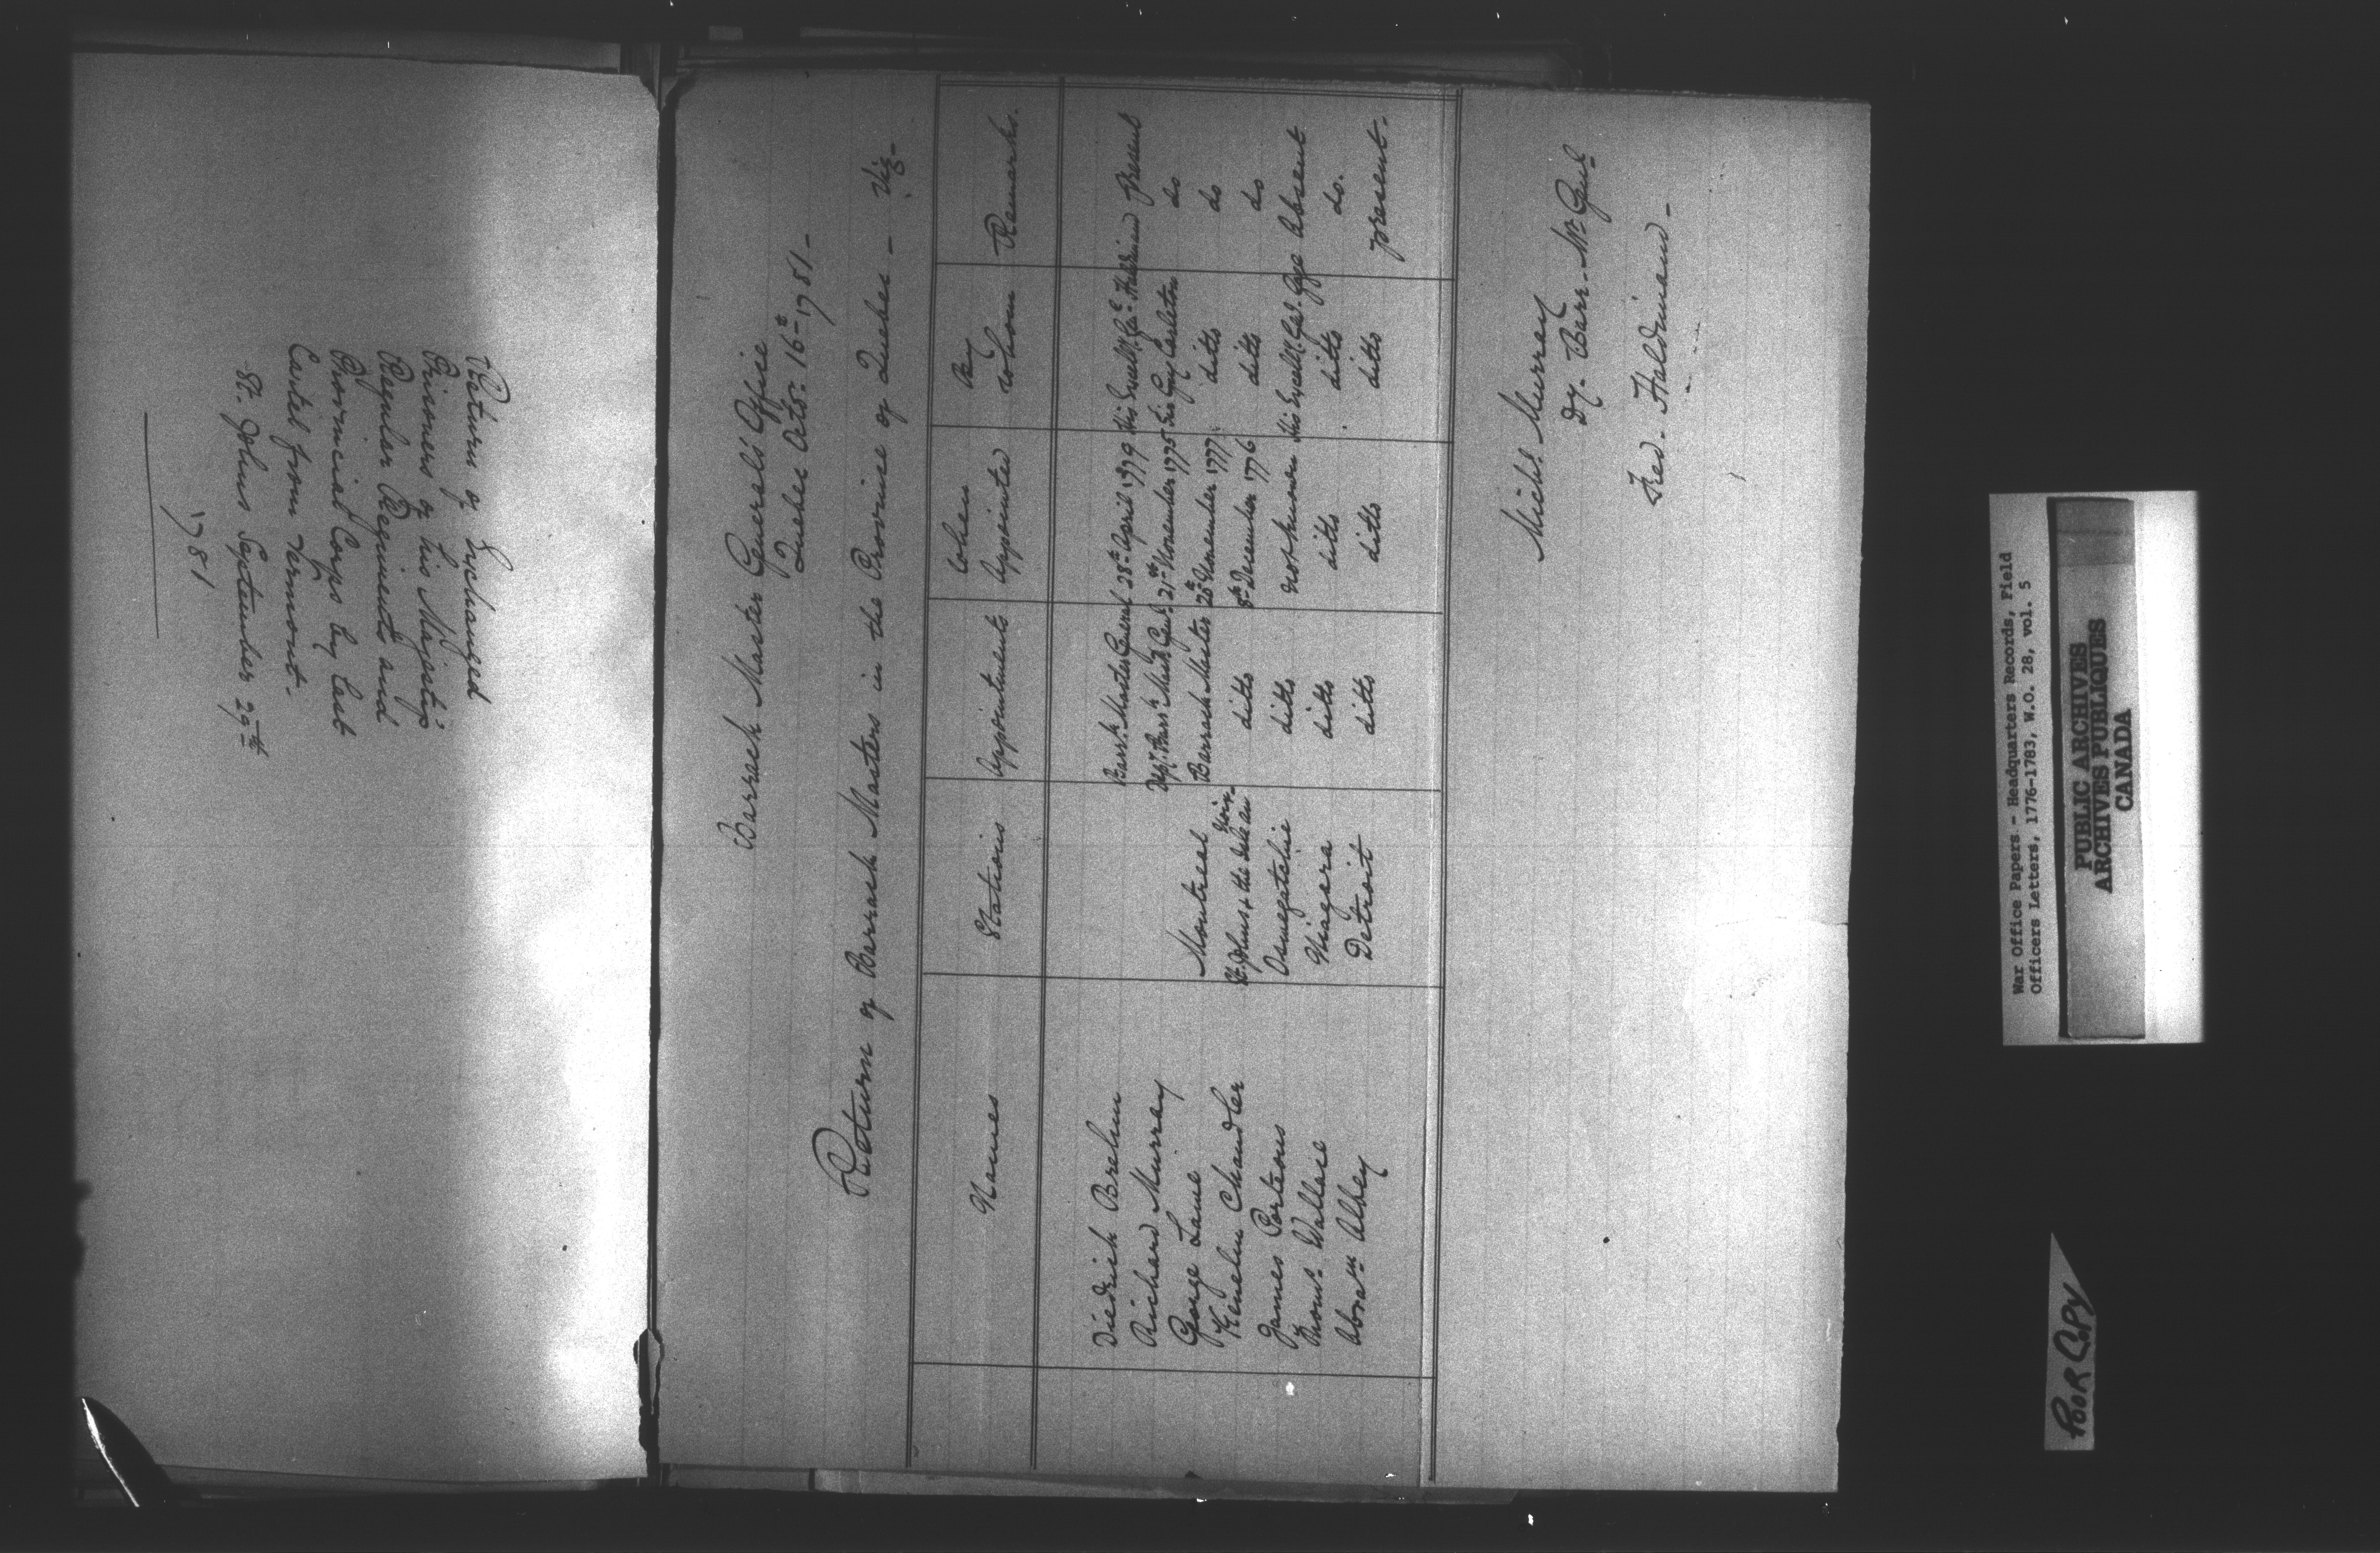 Return of Exchanged
Prisoners of his Majesty's
Regular Regiments and
Provincial Corps by last
Cartel from Vermont.
St. Johns September 29th
1781
Barrack Master General's Office
Quebec Octr. 16th 1781 -
Return of Barrack Masters in the Province of Quebec - Viz -
Names Stations Appointments When Appointed By Whom Remarks.
Diedrich Brehm Barrk. Master General 28th April 1779 His Excelly. Genl. Haldimand Present
Richard Murray Depy. Barrk. Mastr. Genl. 21st November 1775 Sir Guy Carleton do
George Lawe Montreal Barrack Master 20th November 1777 ditto do
Kenelm Chandler St. Johns & the Isle au Noix ditto 8th December 1776 ditto do
James Porteous Oswegatchie ditto not known His Excelly. Gel. Gage Absent
Thoms. Wallace Niagara ditto ditto ditto do.
Abram Albey Detroit ditto ditto ditto present.
Michl. Murray
Dy. Barr. Mr. Genl.
Fred. Haldimand -
War Office Papers - Headquarters Records, Field
Officers Letters, 1776-1783, W.O. 28, vol. 5
PUBLIC ARCHIVES
ARCHIVES PUBLIQUES
CANADA
POOR COPY